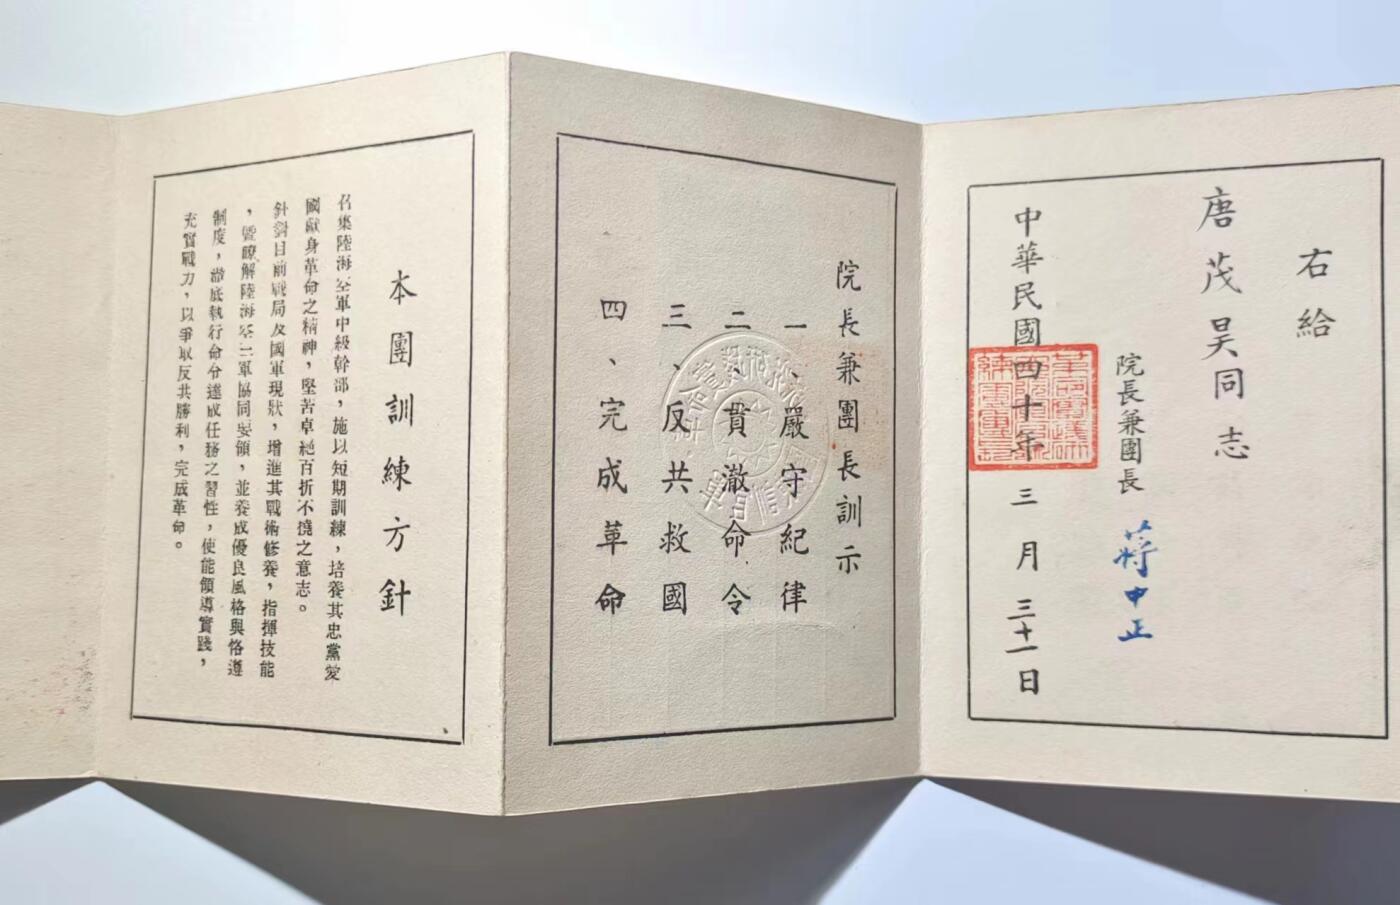 右給
唐茂昊同志
院長兼團長 蔣中正
中華民國四十年三月三十一日
院長兼團長訓示
一、嚴守紀律
二、貫澈命令
三、反共救國
四、完成革命
本團訓練方針
召集陸海空軍中級幹部，施以短期訓練，培養其忠黨愛
國獻身革命之精神，堅苦卓絕百折不撓之意志。
針對目前戰局及國軍現狀，增進其戰術修養，指揮技能
，暨瞭解陸海空三軍協同要領，並養成優良風格與恪遵
制度，澈底執行命令達成任務之習性，使能領導實踐，
充實戰力，以爭取反共勝利，完成革命。